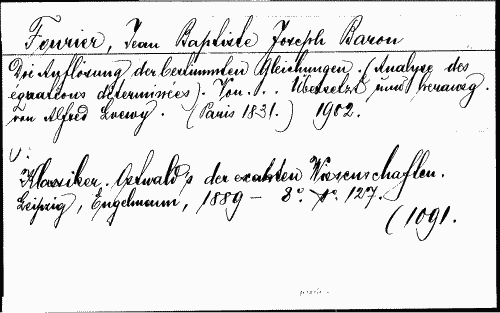 Fourier, Jean Baptiste Joseph Baron
Die Auflösung der bestimmten Gleichungen. (Analyse des
équations déterminées). Von ... Übersetzt und herausg.
von Alfred Loewy. (Paris 1831.) 1902.
V:
Klassiker. Ostwald's der exakten Wissenschaften.
Leipzig, Engelmann, 1889 - 8°. No. 127.
(1091.